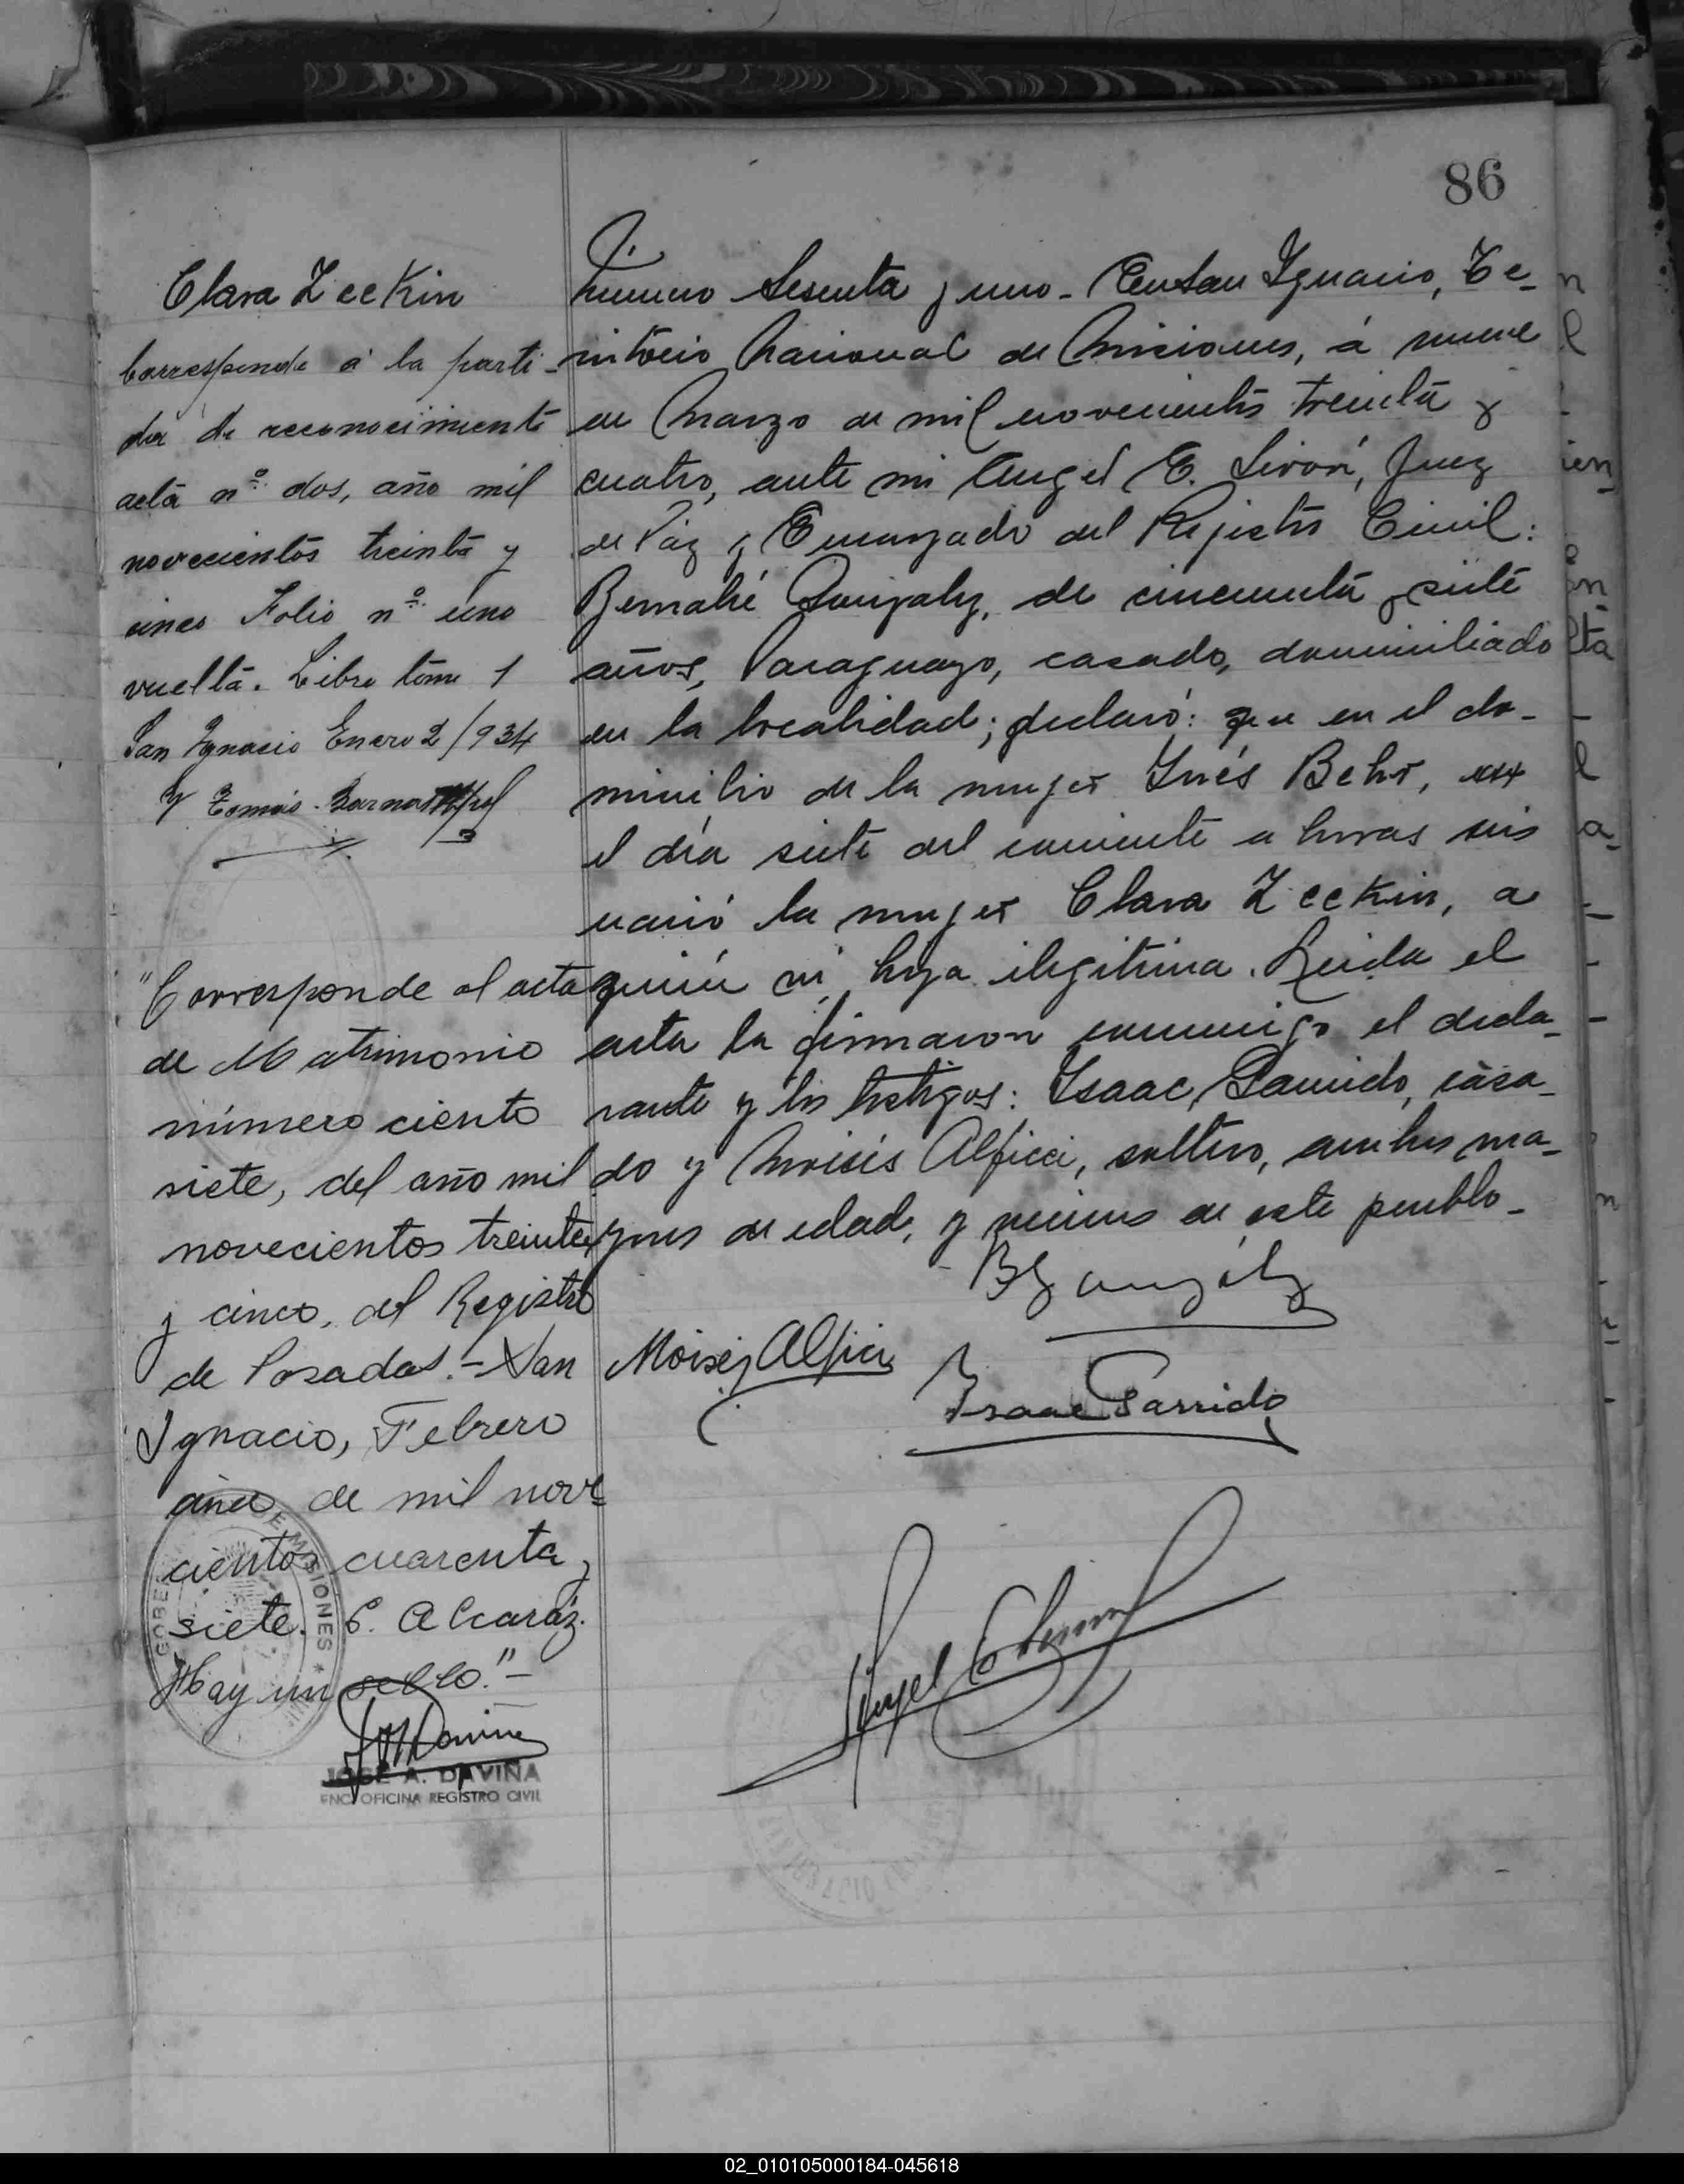 86
Clara Zeekin
Corresponde á la parti-
da de reconocimiento
acta nº dos, año mil
novecientos treinta y
cinco Folio nº uno
vuelta. Libro tomo 1
San Ignacio Enero 2/934
"Corresponde al acta
de Matrimonio
número ciento
siete, del año mil
novecientos treinta
y cinco, del Registro
de Posadas.- San
Ignacio, Febrero
de mil nove-
cientos cuarenta y
siete. C. Alcaraz.
Hay un sello."-
JOSÉ A. DAVIÑA
ENC. OFICINA REGISTRO CIVIL
Número Sesenta y uno - En San Ignacio, Te-
rritorio Nacional de Misiones, á nueve
de Marzo de mil novecientos treinta y
cuatro, ante mi Angel E. Sivori, Juez
de Paz y Encargado del Rejistro Civil:
Bernabé Gonzalez, de cincuenta y siete
años, Paraguayo, casado, domiciliado
en la localidad; declaró: que en el do-
micilio de la mujer Inés Behr,
el día siete del corriente a horas seis
nació la mujer Clara Zeekin, a
quién vi, hija ilegitima. Leida el
acta la firmaron conmigo el decla-
rante y los testigos: Isaac Garrido, casa-
do y Moisés Alfici, soltero, ambos ma-
yores de edad, y vecinos de este pueblo-
B Gonzalez
Moises Alfici
Isaac Garrido
MISIONES
02_010105000184-045618